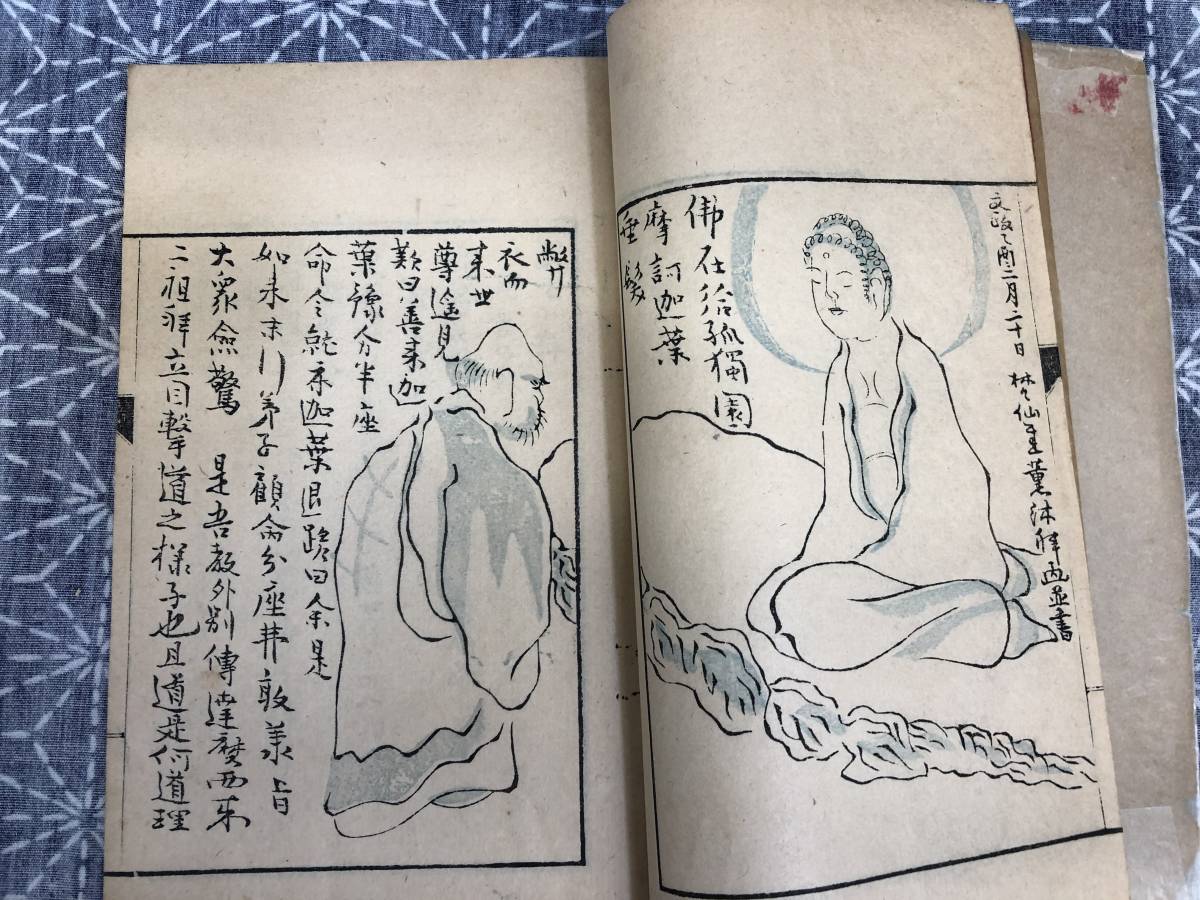 文政乙酉二月二十日 梵仙薫沐拜画並書
佛在給孤獨園
摩訶迦葉
垂髮
敝
衣而
来世
尊遥見
歎曰善来迦
葉豫分半座
命令就座迦葉退跪曰余是
如来末行弟子顧命分座弗敢承旨
大衆僉驚 是吾教外別傳達磨西来
二祖拜立目撃道之様子也且道是何道理